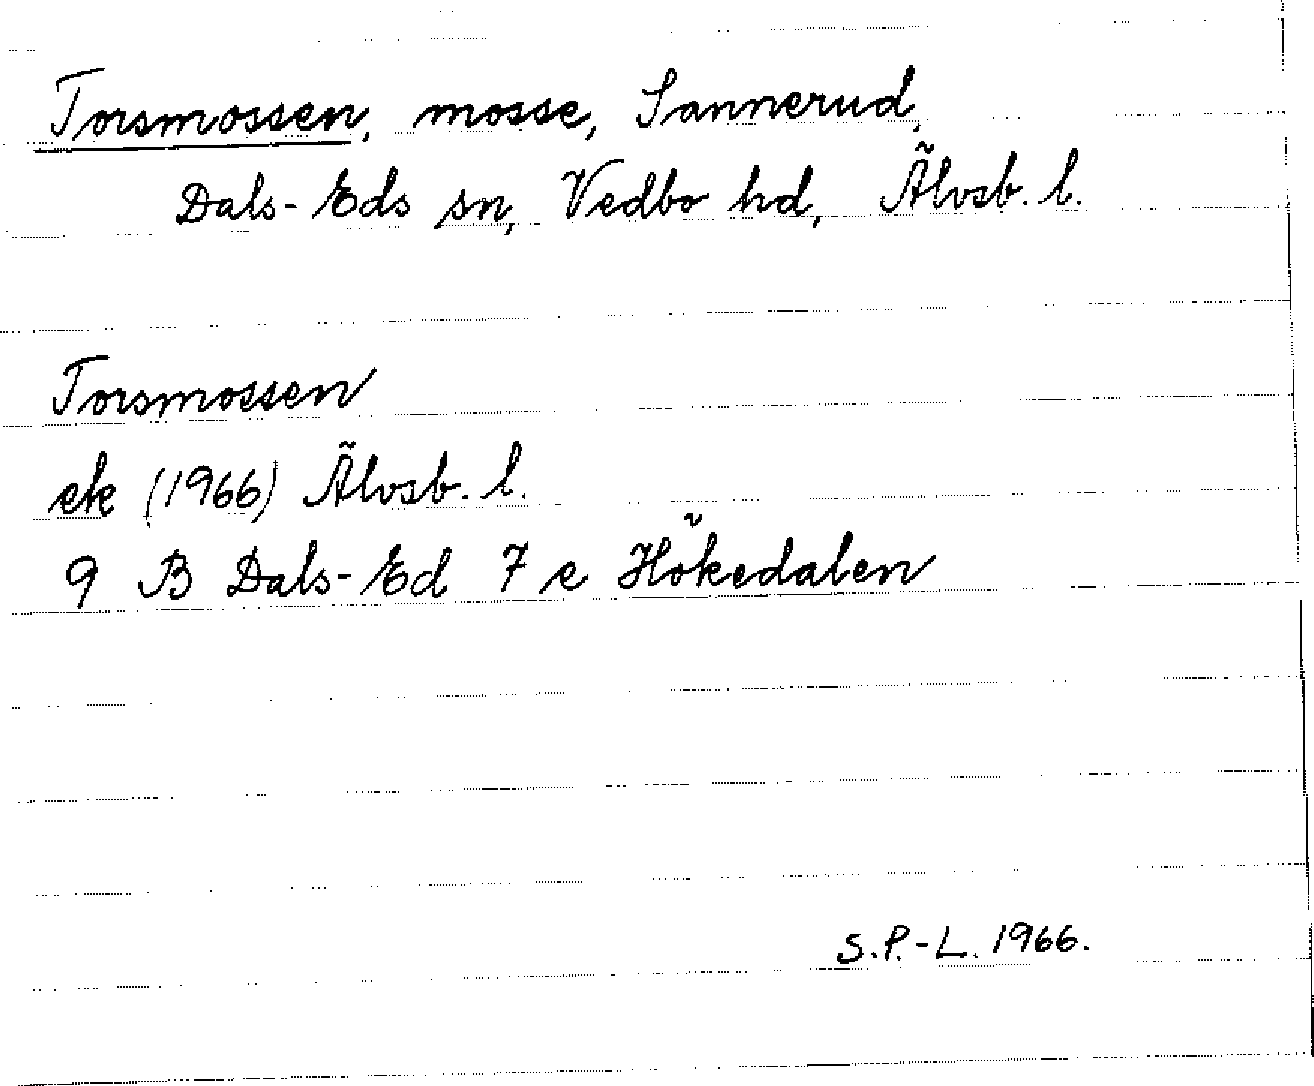 Torsmossen, mosse, Sannerud,
Dals-Eds sn, Vedbo hd, Älvsb. l.
Torsmossen
ek (1966) Älvsb. l.
9 B Dals-Ed 7 e Hökedalen
S.P.-L. 1966.